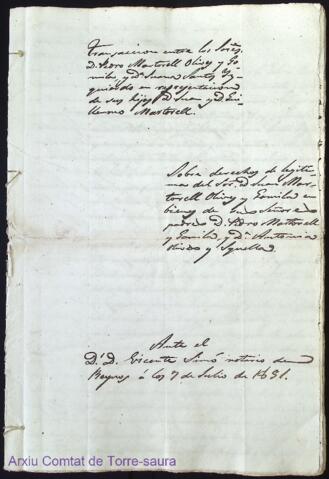 Transaccion entre los Sres.
D. Pedro Martorell Olives y Go-
mila, y Dª Juana Santos Yz-
quierdo en representacion
de sus hijos D. Juan y D. Gui-
llermo Martorell.
Sobre derechos de legiti-
mas del Sor. D. Juan Mar-
torell Olives y Gomila en
bienes de los Señores
padres D. Pedro Martorell
y Gomila, y Dª Antonia
Olives y Squella
Ante el
Dr. D. Vicente Simó notario de
á los 7 de Julio de
Arxiu Comtat de Torre-saura